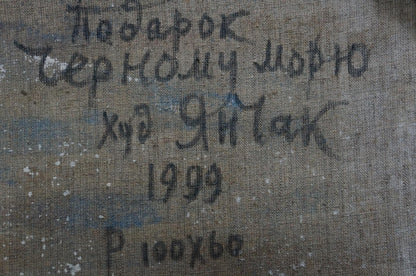 Подарок
Черному морю
худ Янчак
1999
Р 100х60